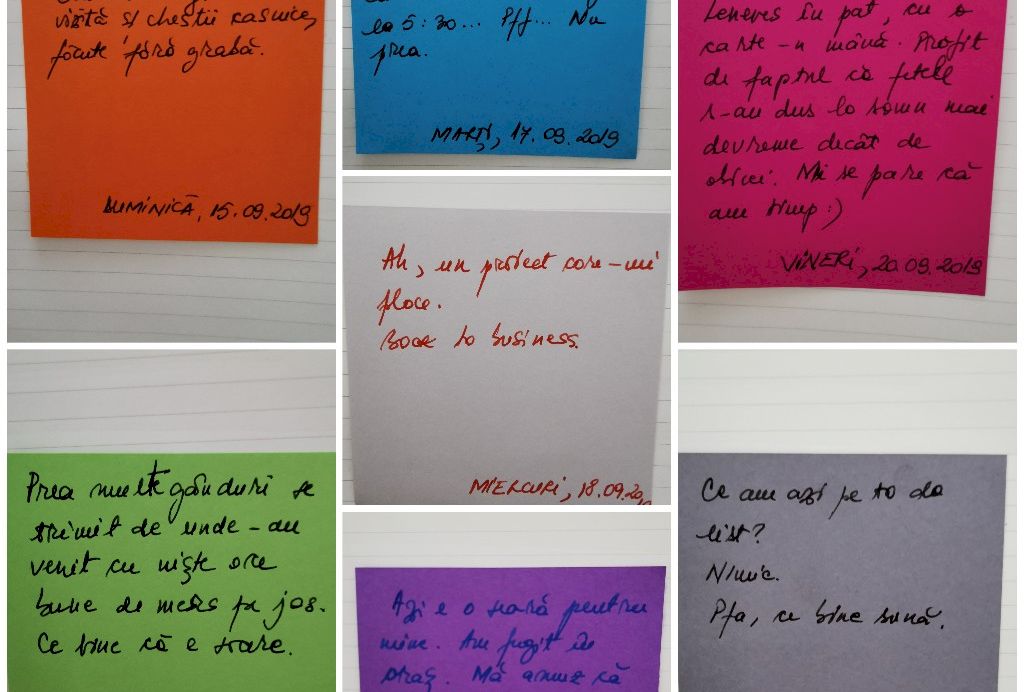 vizită și chestii casnice,
făcute fără grabă.
DUMINICĂ, 15.09.2019
Prea multe gânduri se
trimit de unde-au
venit cu niște ore
bune de mers pe jos.
Ce bine că e soare.
la 5:30... Pff... Nu
prea.
MARȚI, 17.09.2019
Ah, un proiect care-mi
place.
Back to business.
MIERCURI, 18.09.20
Azi e o seară pentru
mine. Am fugit în
oraș. Mă amuz că
Lenevesc în pat, cu o
carte-n mână. Profit
de faptul că fetele
s-au dus la somn mai
devreme decât de
obicei. Mi se pare că
am timp :)
VINERI, 20.09.2019
Ce am azi pe to do
list?
Nimic.
Pfa, ce bine sună.